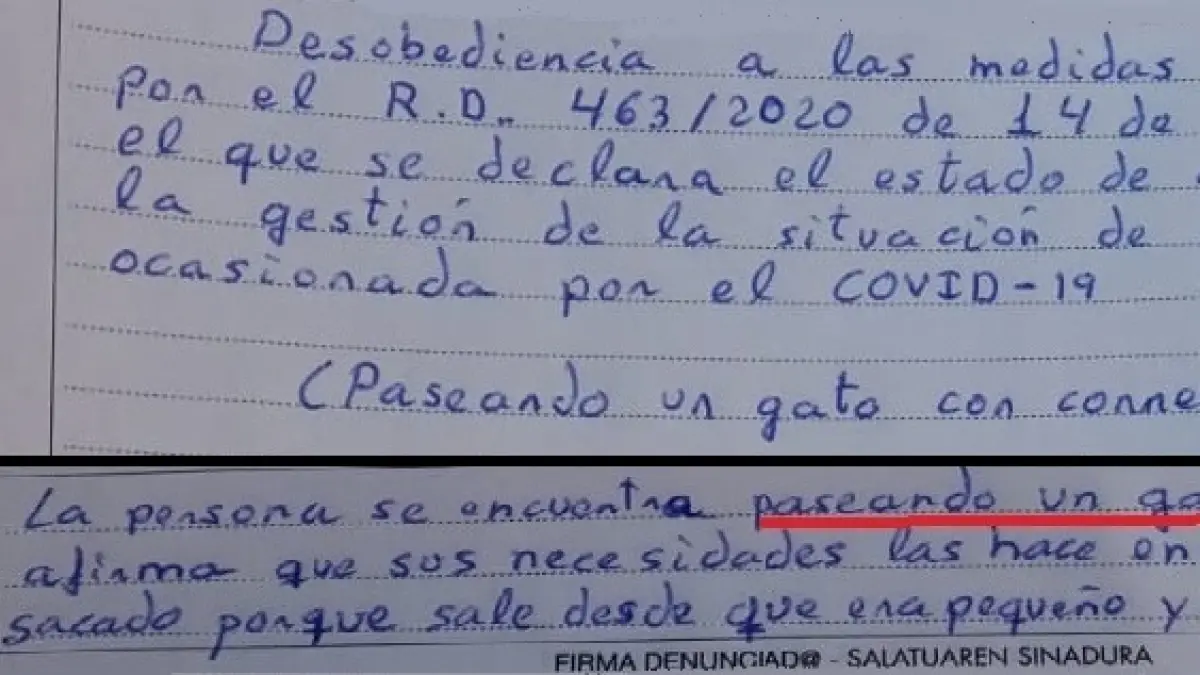 Desobediencia a las medidas
por el R.D. 463/2020 de 14 de
el que se declara el estado de
la gestión de la situación de
ocasionada por el COVID-19
(Paseando un gato con corre
La persona se encuentra paseando un ga
afirma que sus necesidades las hace en
sacado porque sale desde que era pequeño y
FIRMA DENUNCIAD@ - SALATUAREN SINADURA